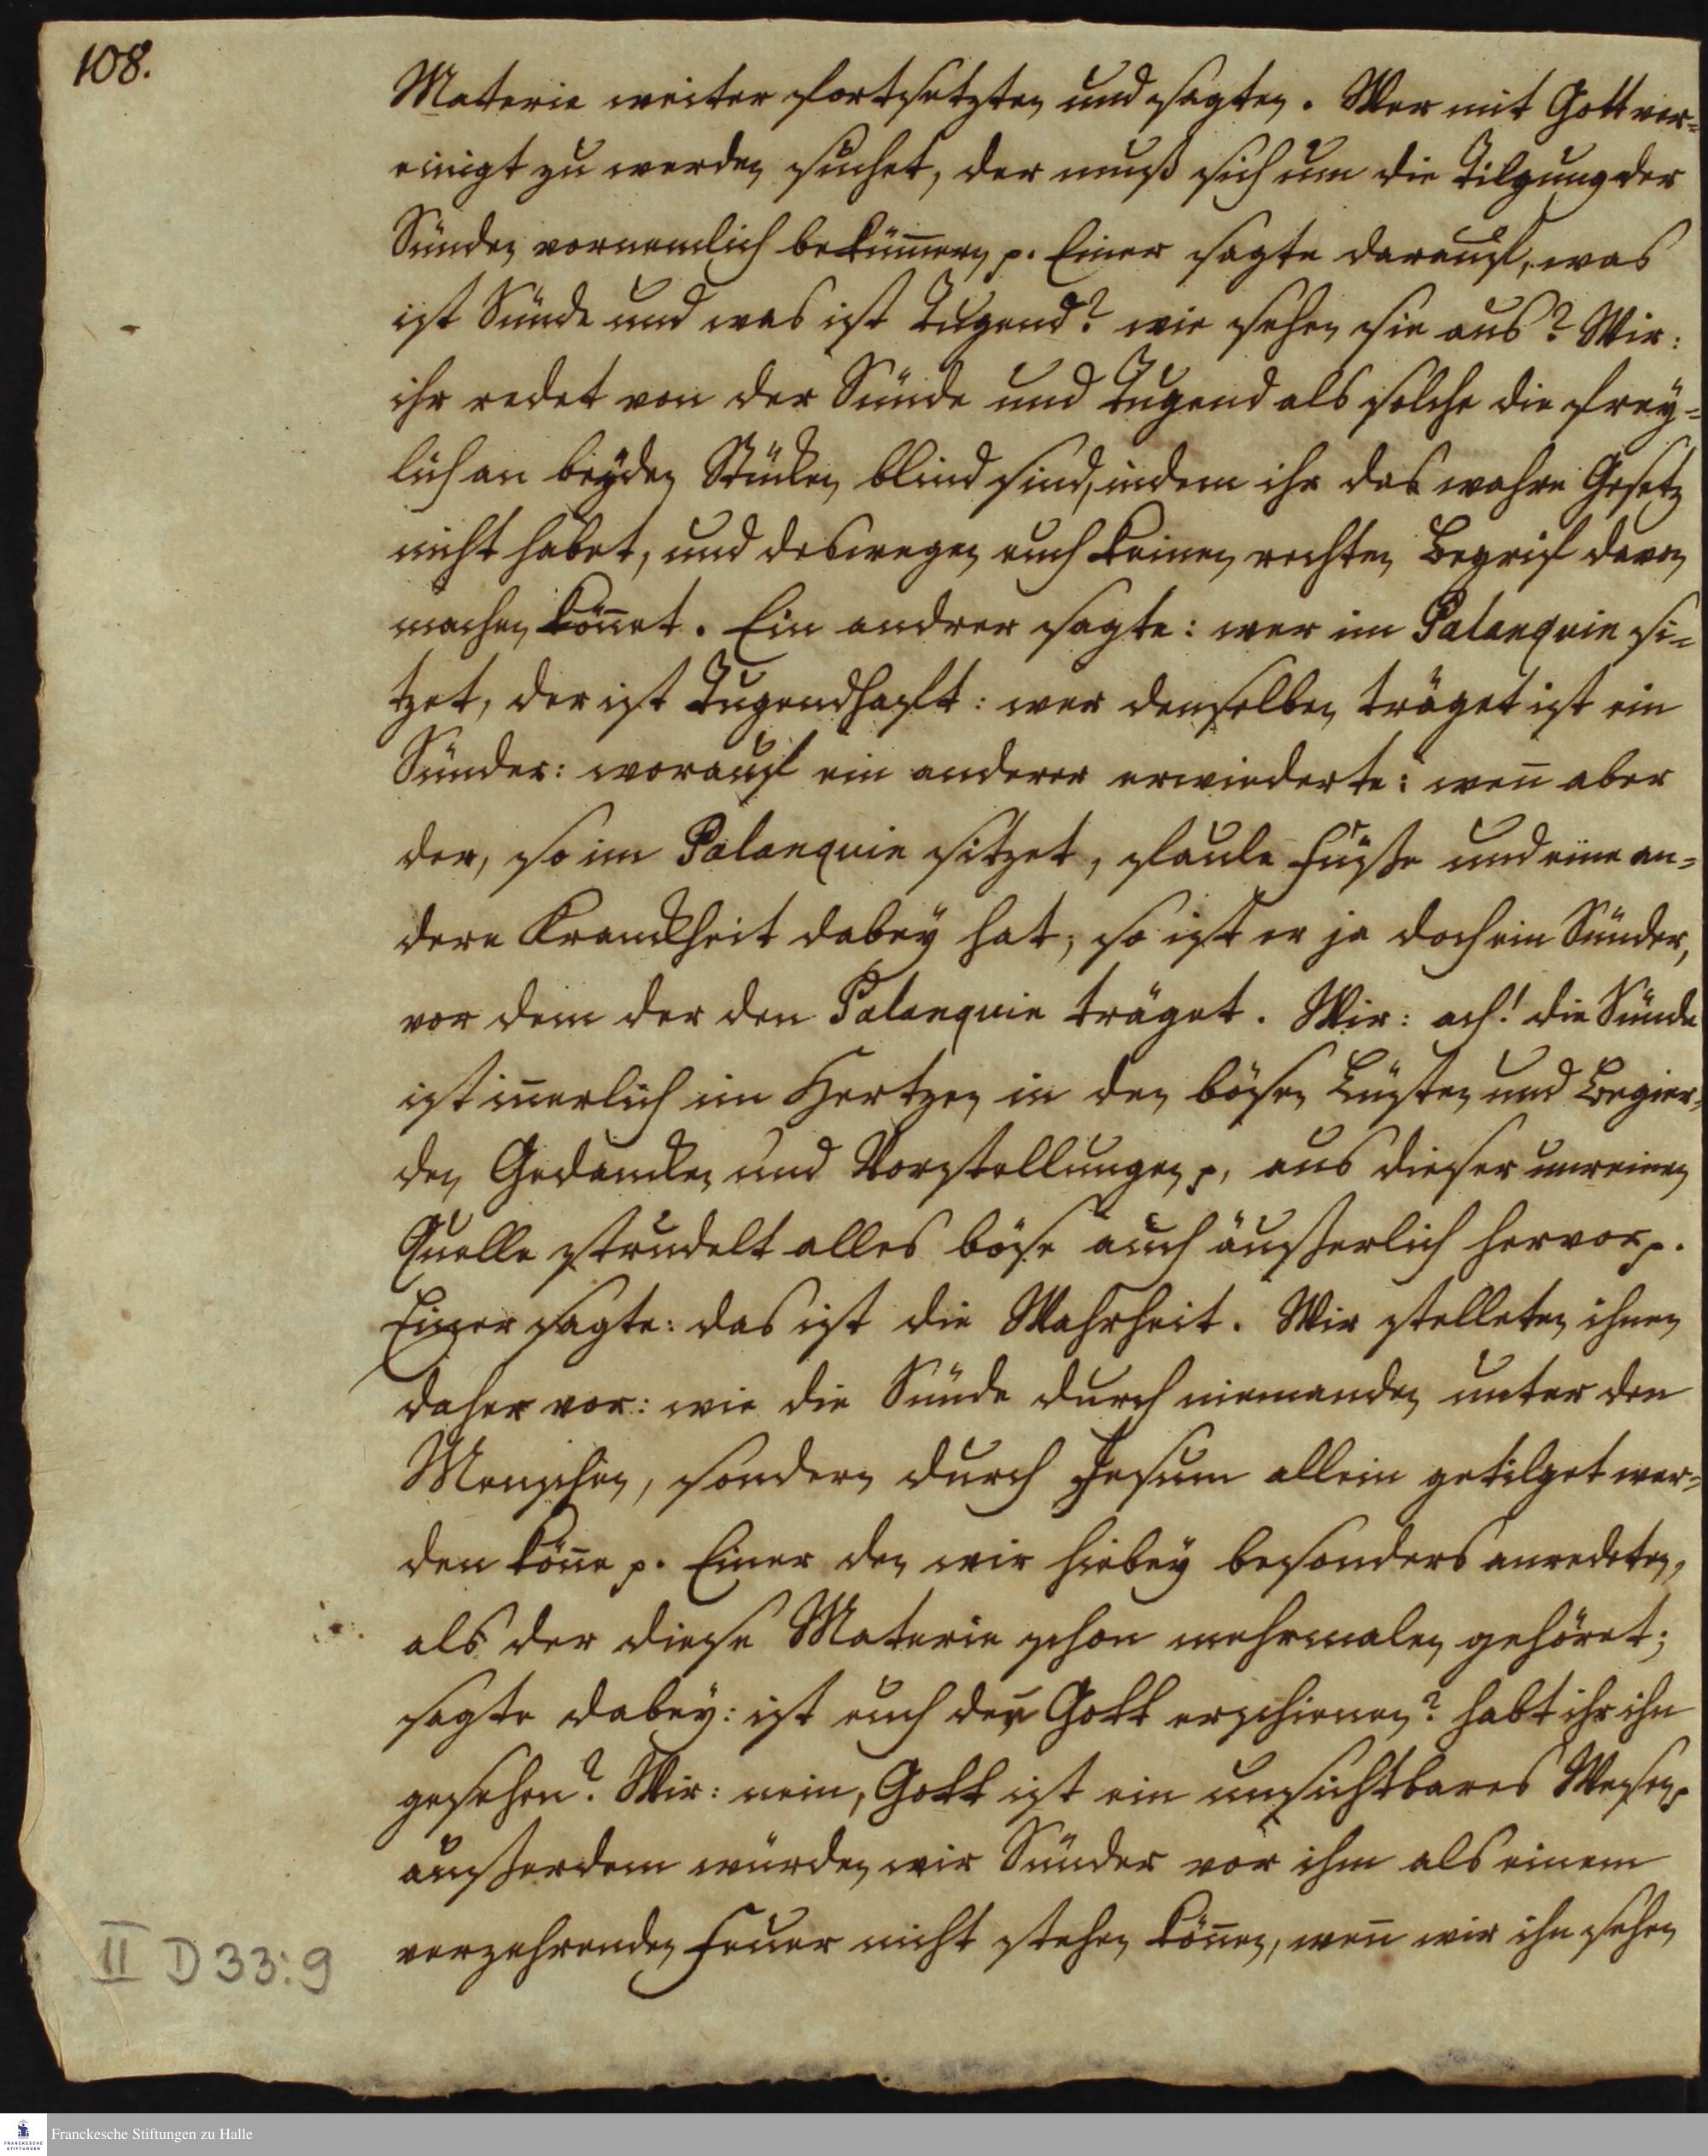 108.
Materie weiter fortsetzten und sagten. Wer mit Gott ver=
einigt zu werden suchet, der muß sich um die Tilgung der
Sünden vornemlich bekum̅ern p. Einer sagte darauf, was
ist Sünde und was ist Tugend? wie sehen sie aus? Wir:
ihr redet von der Sünde und Tugend als solche die frey=
lich an beyden Stücken blind sind, indem ihr das wahre Gesetz
nicht habet, und deswegen euch keinen rechten Begrif davon
machen kön̅et. Ein andrer sagte: wer im Palanquin si=
tzet, der ist Tugendhafft: wer denselben träget ist ein
Sünder: worauf ein anderer erwiederte: wen̅ aber
der, so im Palanquin sitzet, faule Füße und eine an=
dere Kranckheit dabey hat, so ist er ja doch ein Sünder,
vor dem der den Palanquin träget. Wir: ach! die Sünde
ist in̅erlich im Hertzen in den bösen Lüsten und Begier=
den Gedancken und Vorstellungen p, aus dieser unreinen
Quelle strudelt alles böse auch äußerlich hervor p.
Einer sagte: das ist die Wahrheit. Wir stelleten ihnen
daher vor: wie die Sünde durch niemanden unter den
Menschen, sondern durch Jesum allein getilget wer=
den kön̅e p. Einer den wir hiebey besonders anredeten,
als der diese Materie schon mehrmalen gehöret;
sagte dabey: ist euch den̅ Gott erschienen? habt ihr ihn
gesehen? Wir: nein, Gott ist ein unsichtbares Wesen p
außerdem würden wir Sünder vor ihm als einem
verzehrenden Feuer nicht stehen kön̅en, wen̅ wir ihn sehen
II D 33:9
Franckesche Stiftungen zu Halle
FRANCKESCHE
STIFTUNGEN